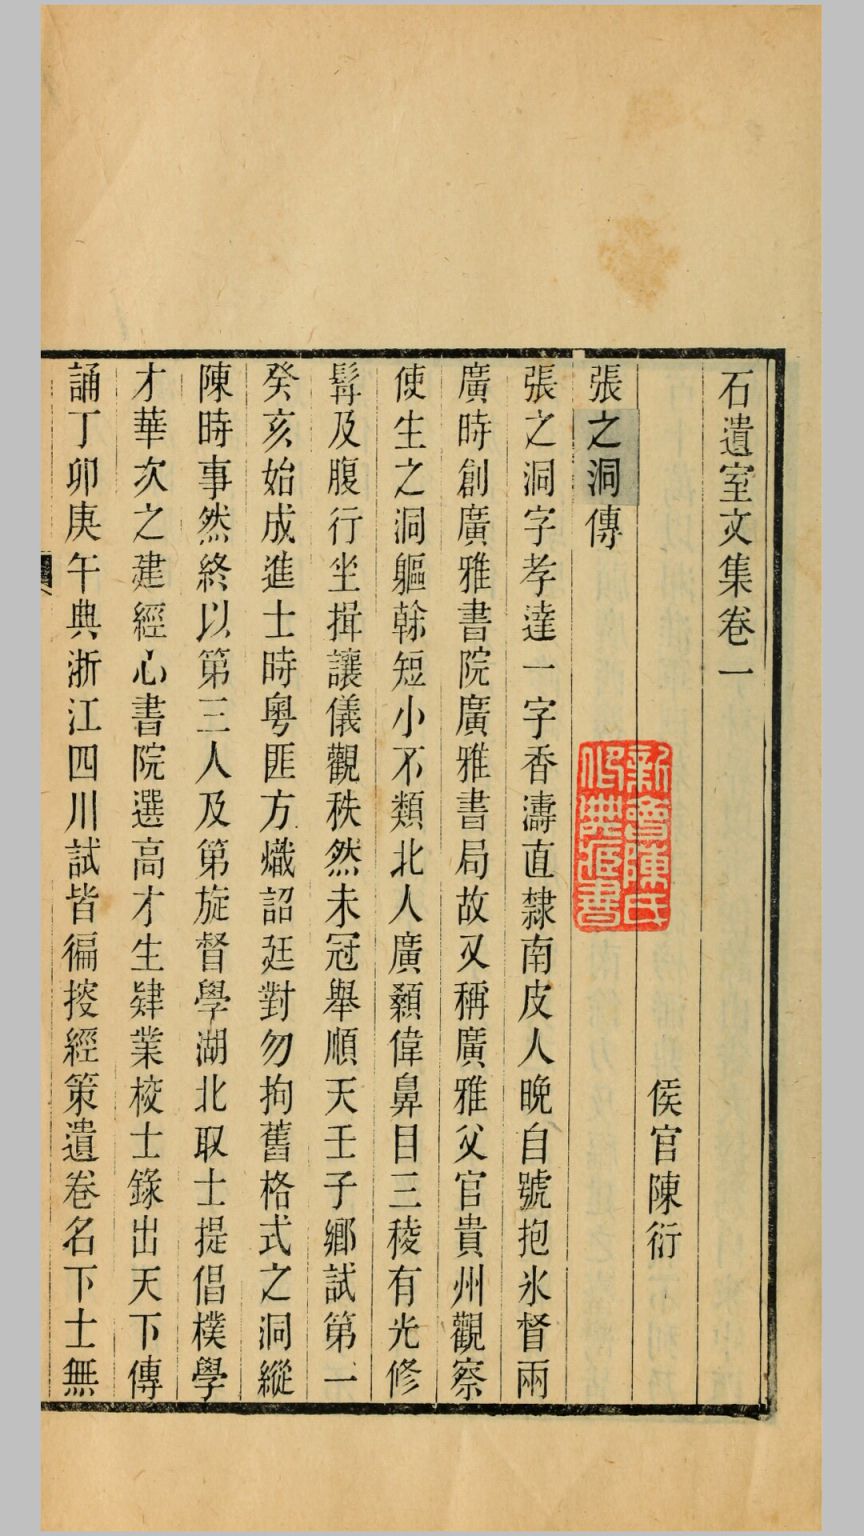 石遺室文集卷一
侯官陳衍
張之洞傳
張之洞字孝達一字香濤直隸南皮人晚自號抱氷督兩
廣時創廣雅書院廣雅書局故又稱廣雅父官貴州觀察
使生之洞軀榦短小不類北人廣顙偉鼻目三稜有光修
髯及腹行坐揖讓儀觀秩然未冠舉順天壬子鄉試第一
癸亥始成進士時粵匪方熾詔廷對勿拘舊格式之洞縱
陳時事然終以第三人及第旋督學湖北取士提倡樸學
才華次之建經心書院選高才生肄業校士錄出天下傳
誦丁卯庚午典浙江四川試皆徧挍經策遺卷名下士無
新會陳氏
所藏書